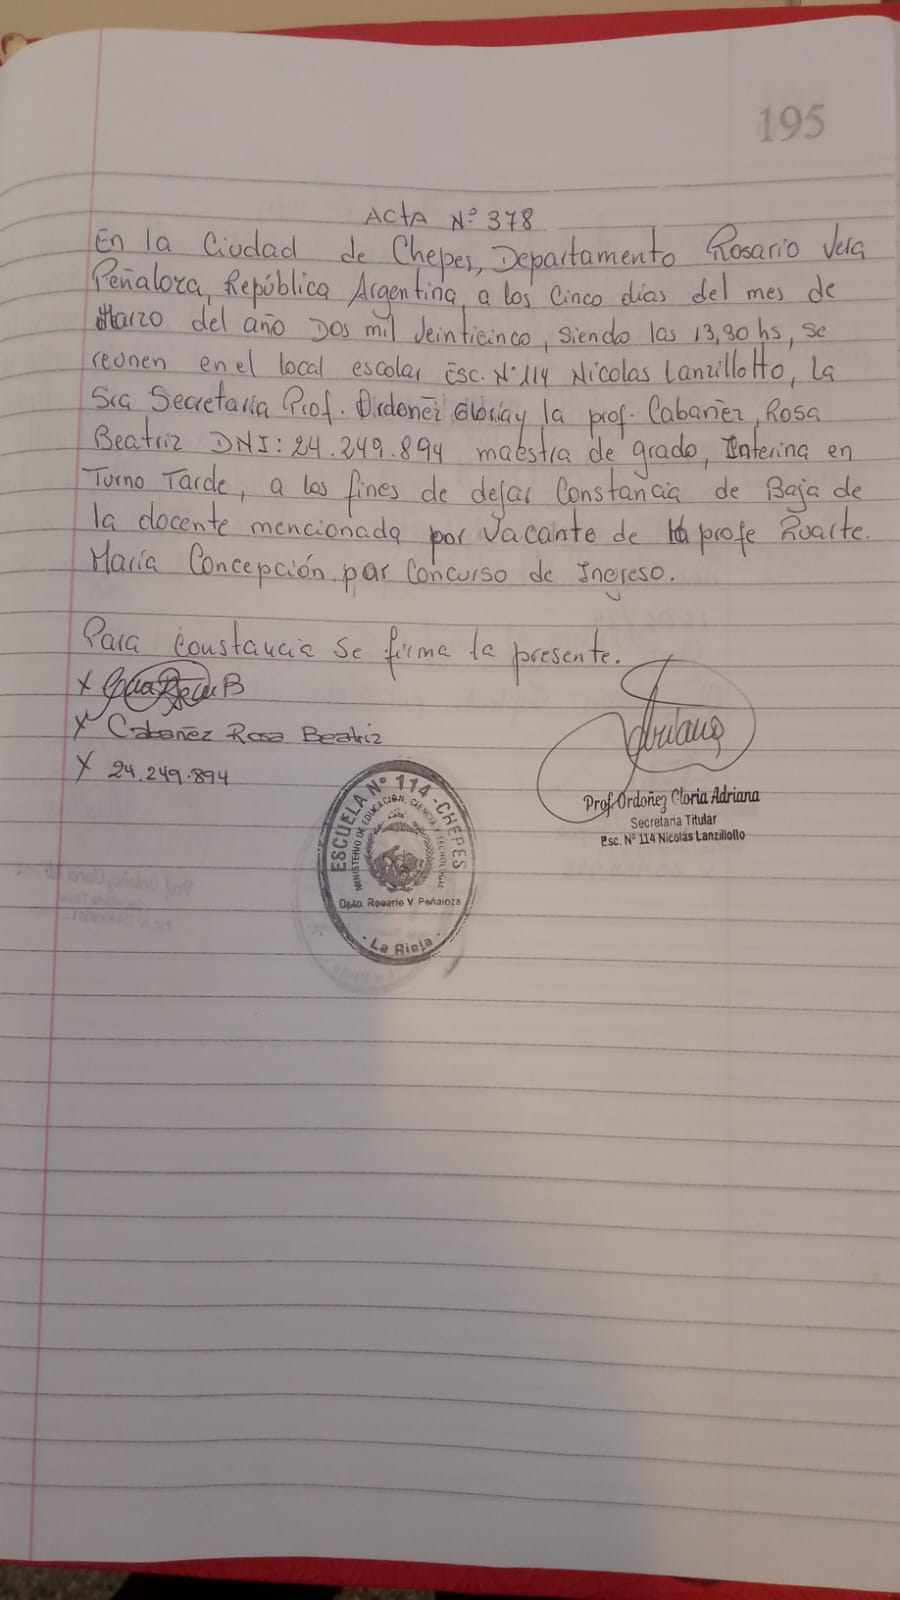 195
ACTA N° 378
En la Ciudad de Chepes, Departamento Rosario Vera
Peñaloza, República Argentina, a los Cinco días del mes de
Marzo del año Dos mil Veinticinco, Siendo las 13,30 hs, se
reonen en el local escolar Esc. N° 114 Nicolas Lanzillotto, la
Sra Secretaria Prof. Ordoñez Gloria y la prof. Cabañez, Rosa
Beatriz DNI: 24.249.894 maestra de grado, Interina en
Turno Tarde, a los fines de dejar Constancia de Baja de
la docente mencionada por Vacante de la profe Ruarte.
María Concepción, por Concurso de Ingreso.
Para constancia se firma la presente.
X
X Cabañez Rosa Beatriz
X 24.249.894
Prof. Ordoñez Gloria Adriana
Secretaria Titular
Esc. N° 114 Nicolás Lanzillotto
ESCUELA N° 114 - CHEPES
MINISTERIO DE EDUCACIÓN, CIENCIA Y TECNOLOGÍA
Dpto. Rosario V Peñaloza
- La Rioja -